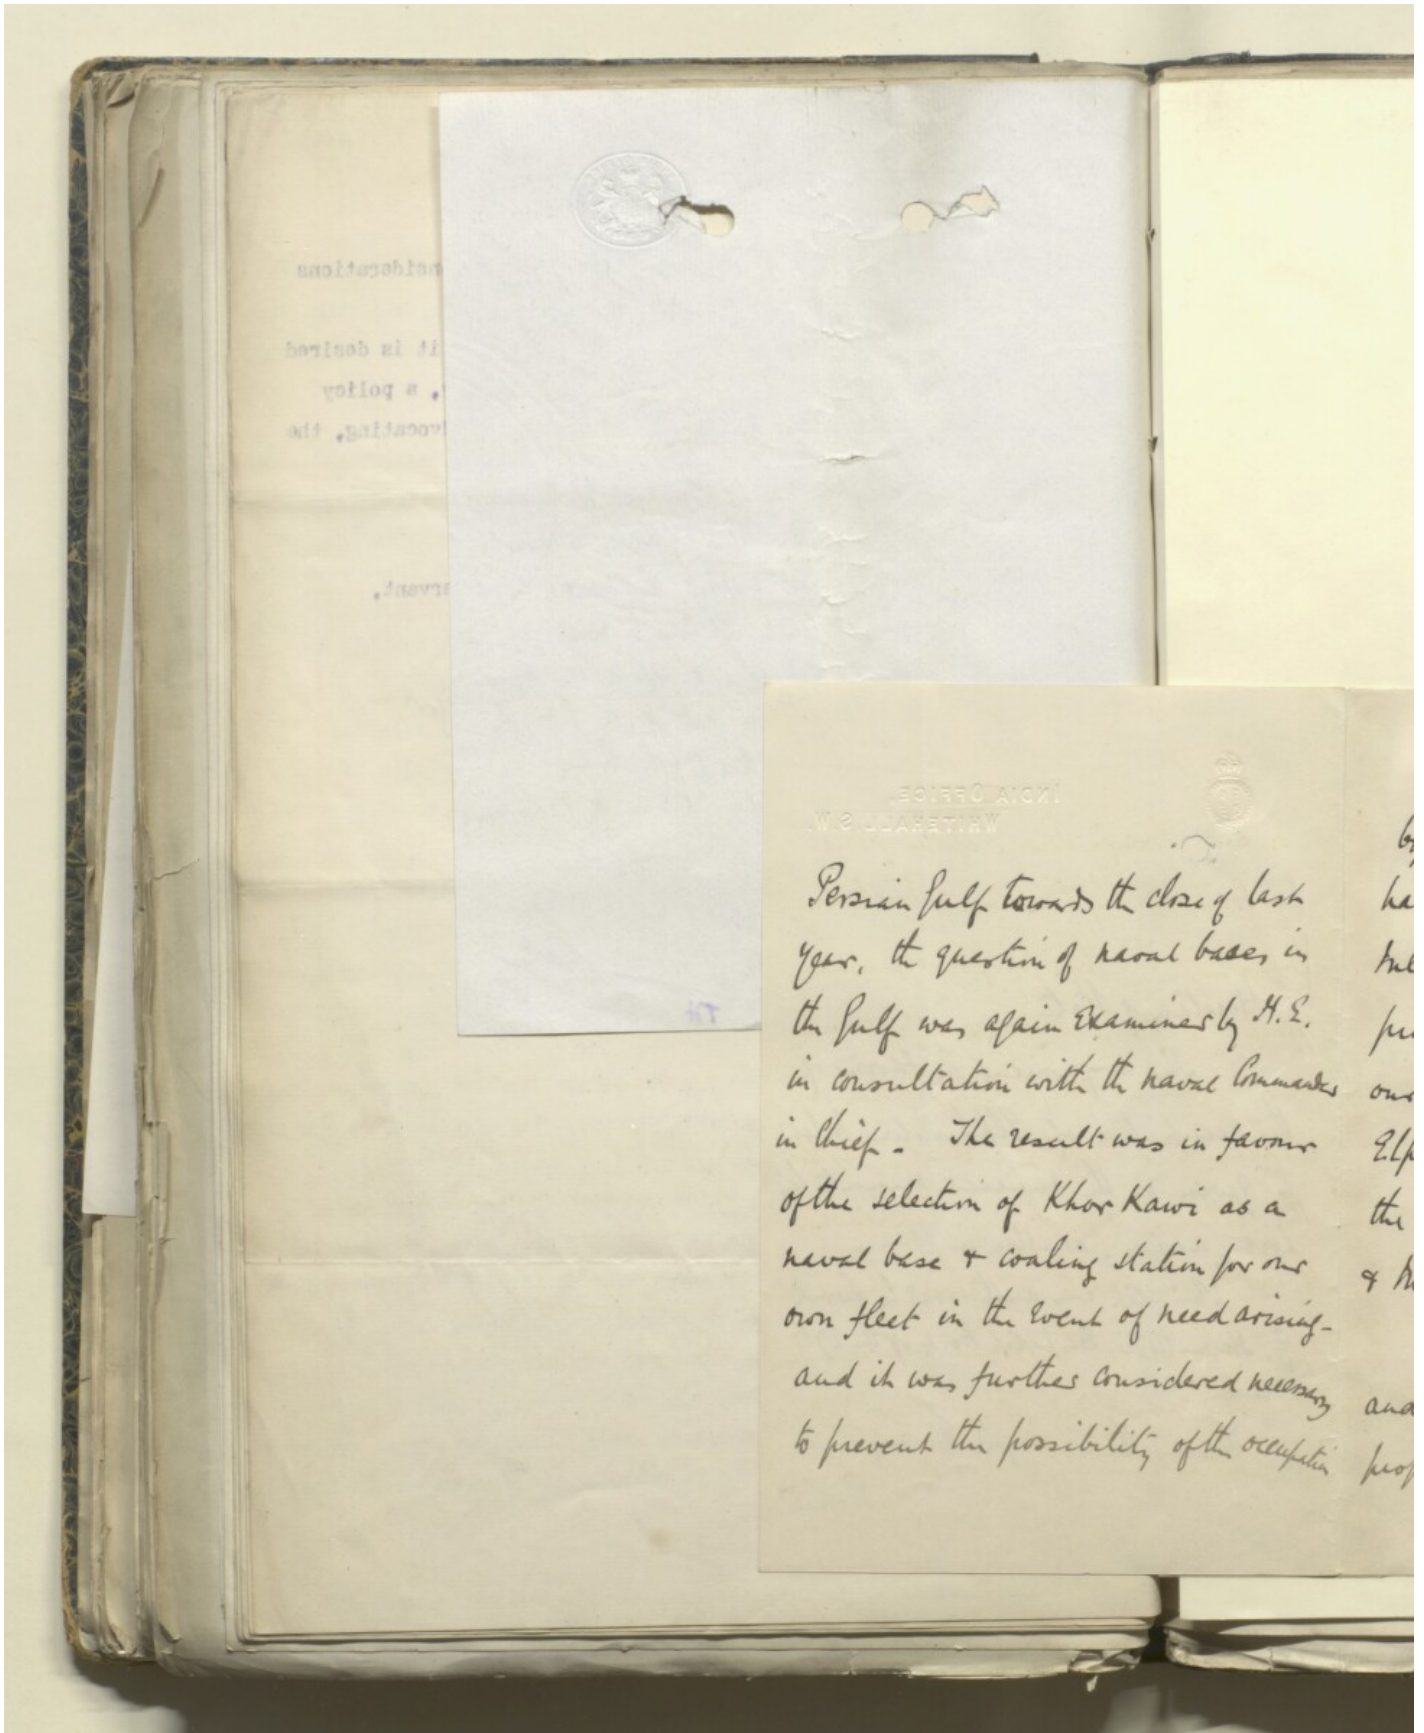 nsiderations
it is desired
, a policy
vocating, the
rvant,
INDIA OFFICE,
WHITEHALL. S.W.
Persian Gulf towards the close of last
year, the question of naval bases in
the Gulf was again examined by H.E.
in consultation with the naval Commander
in Chief. The result was in favour
of the selection of Khor Kawi as a
naval base & coaling station for our
own fleet in the event of need arising -
and it was further considered necessary
to prevent the possibility of the occupation
ha
our
the
&
and
prop